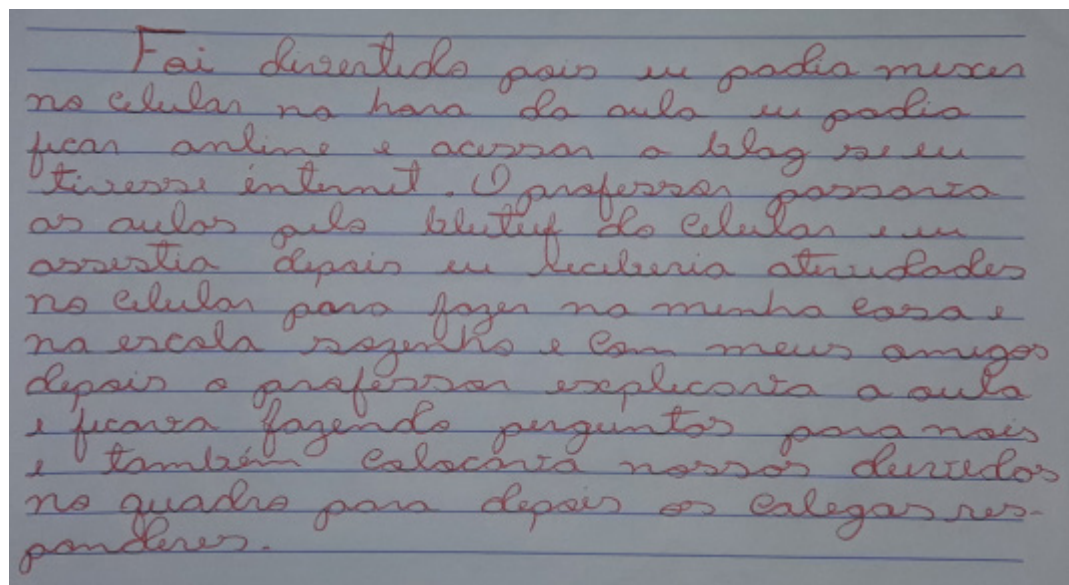 Foi divertido pois eu podia mexer
no celular na hora da aula eu podia
ficar online e acessar o blog se eu
tivesse internet. O professor passava
as aulas pelo blutuf do celular e eu
assestia depois eu receberia atividades
no celular para fazer na minha casa e
na escola sozinho e com meus amigos
depois o professor explicava a aula
e ficava fazendo perguntas para nois
e também colocava nossas duvidas
no quadro para depois os colegas res-
ponderes.